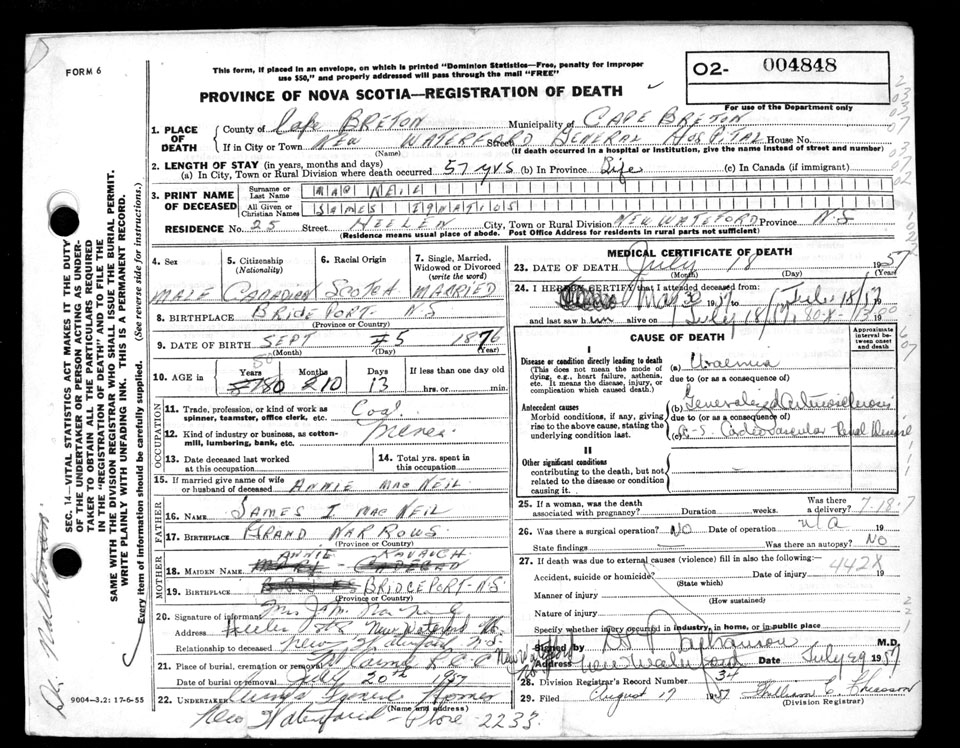 FORM 6
This form, if placed in an envelope, on which is printed "Dominion Statistics—Free, penalty for improper
use $50," and properly addressed will pass through the mail "FREE"
O2- 004848
For use of the Department only
PROVINCE OF NOVA SCOTIA—REGISTRATION OF DEATH
1. PLACE OF DEATH
County of Cape BRETON Municipality of CAPE BRETON
If in City or Town NEW WATERFORD Street GENERAL HOSPITAL House No.
(Name) (If death occurred in a hospital or institution, give the name instead of street and number)
2. LENGTH OF STAY (in years, months and days)
(a) In City, Town or Rural Division where death occurred 57 yrs (b) In Province Life (c) In Canada (if immigrant)
3. PRINT NAME OF DECEASED
Surname or Last Name MAC NEIL
All Given or Christian Names JAMES IGNATIOS
RESIDENCE No. 25 Street HELLEN City, Town or Rural Division NEW WATEFORD Province N-S
(Residence means usual place of abode. Post Office Address for residents in rural parts not sufficient)
4. Sex
5. Citizenship (Nationality)
6. Racial Origin
7. Single, Married, Widowed or Divorced (write the word)
MALE CANADIEN SCOTCH MARRIED
8. BIRTHPLACE BRIDEPORT- N-S
(Province or Country)
9. DATE OF BIRTH SEPT 5 1876
(Month) (Day) (Year)
10. AGE in Years 80 Months 10 Days 13 If less than one day old
hrs. or min.
OCCUPATION
11. Trade, profession, or kind of work as spinner, teamster, office clerk, etc. Coal
12. Kind of industry or business, as cotton-mill, lumbering, bank, etc. Miner
13. Date deceased last worked at this occupation
14. Total yrs. spent in this occupation
15. If married give name of wife or husband of deceased ANNIE MACNEIL
FATHER
16. Name JAMES I MAC NEIL
17. Birthplace GRAND NARROWS
(Province or Country)
MOTHER
ANNIE
18. Maiden Name
19. Birthplace BRIDGEPORT-N-S-
(Province or Country)
20. Signature of informant
Address New Waterford N.S.
Relationship to deceased New Waterford N.S.
21. Place of burial, cremation or removal R.C.
Date of burial or removal July 20th 1957
22. UNDERTAKER
(Name and address)
New Waterford - Phone 2233
MEDICAL CERTIFICATE OF DEATH
23. DATE OF DEATH July 18 1957
(Month) (Day) (Year)
24. I HEREBY CERTIFY that I attended deceased from:
and last saw him alive on
CAUSE OF DEATH
Approximate interval between onset and death
I
Disease or condition directly leading to death
(This does not mean the mode of dying, e.g., heart failure, asthenia, etc. It means the disease, injury, or complication which caused death.)
(a) Uraemia
due to (or as a consequence of)
Antecedent causes
Morbid conditions, if any, giving rise to the above cause, stating the underlying condition last.
(b) Generalized Arteriosclerosis
due to (or as a consequence of)
(c) A-S- Cardiovascular Renal Disease
II
Other significant conditions
contributing to the death, but not related to the disease or condition causing it.
25. If a woman, was the death associated with pregnancy? Duration weeks. Was there a delivery?
7-18-7
26. Was there a surgical operation? NO Date of operation n/a 19
State findings Was there an autopsy? NO
27. If death was due to external causes (violence) fill in also the following:
442X
Accident, suicide or homicide? Date of injury 19
(State which)
Manner of injury
(How sustained)
Nature of injury
Specify whether injury occurred in industry, in home, or in public place
Signed by M.D.
Address New Waterford Date July 29 1957
28. Division Registrar's Record Number 34
29. Filed August 17 1957 William C. Chiasson
(Division Registrar)
SEC. 14—VITAL STATISTICS ACT MAKES IT THE DUTY
OF THE UNDERTAKER OR PERSON ACTING AS UNDER-
TAKER TO OBTAIN ALL THE PARTICULARS REQUIRED
IN THE "REGISTRATION OF DEATH" AND TO FILE THE
SAME WITH THE DIVISION REGISTRAR WHO SHALL ISSUE THE BURIAL PERMIT.
WRITE PLAINLY WITH UNFADING INK. THIS IS A PERMANENT RECORD.
Every item of information should be carefully supplied. (See reverse side for instructions.)
9004-3.2: 17-6-55